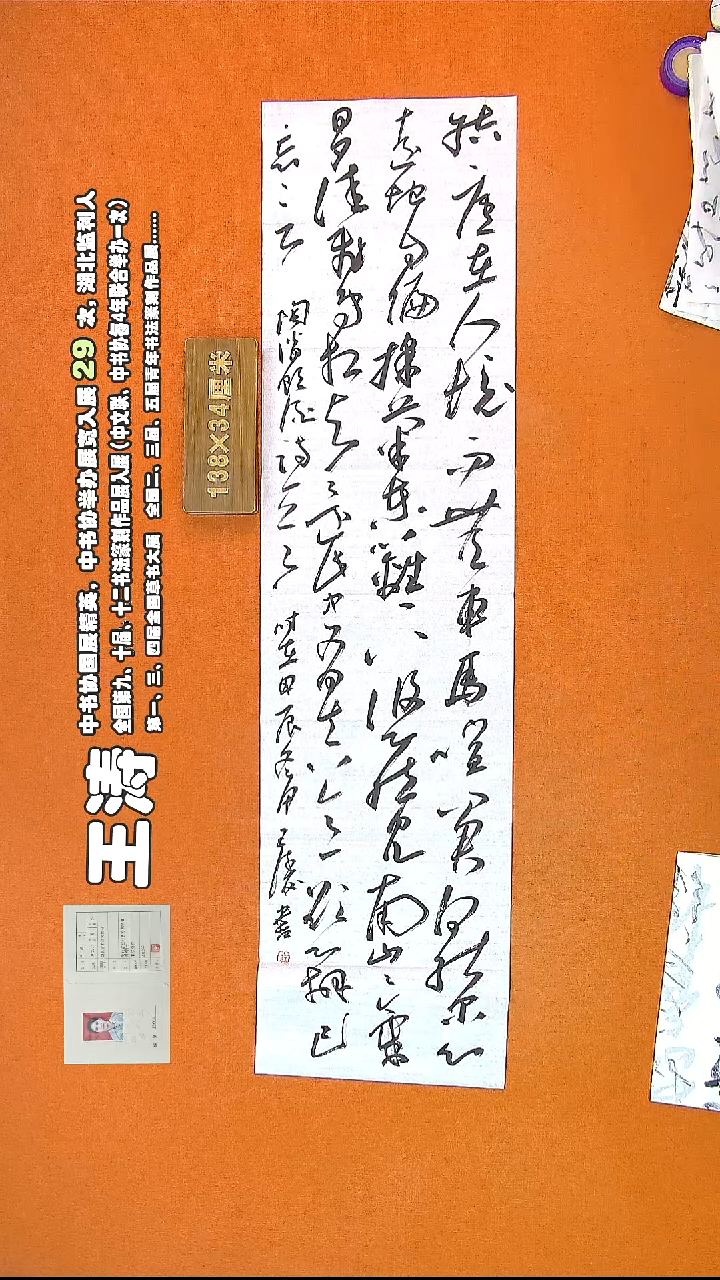 王涛
中书协国展精英，中书协举办展览入展29次，湖北监利人
全国第九、十届、十二书法篆刻作品展入展（中文联、中书协每4年联合举办一次）
第一、三、四届全国草书大展 全国二、三届、五届青年书法篆刻作品展......
138×34厘米
結廬在人境而無車馬喧問君何能尔心
遠地自偏採菊東籬下悠然見南山山氣
日夕佳飛鳥相与還此中有真意欲辨已
忘言 陶淵明 詩一首 時在甲辰 王濤書